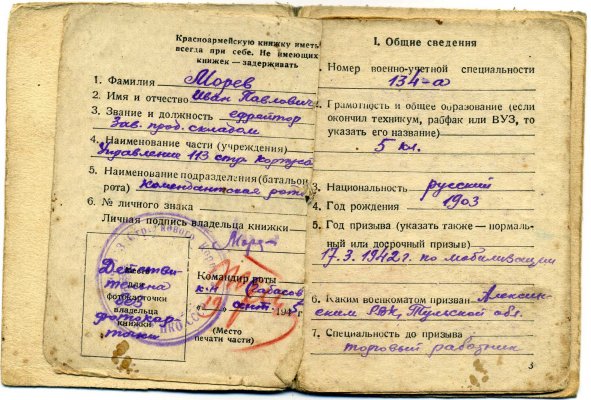 Красноармейскую книжку иметь
всегда при себе. Не имеющих
книжек — задерживать
1. Фамилия Морев
2. Имя и отчество Иван Павлович
3. Звание и должность ефрейтор
Зав. прод. складом
4. Наименование части (учреждения)
Управление 113 стр. корпуса
5. Наименование подразделения (батальон
рота) Комендантская рота
6. № личного знака
Личная подпись владельца книжки
Действи-
тельна
без
фотокар-
точки
фотокарточки
владельца
книжки
НКО СССР
Командир роты
к-н
сент. 194
(Место
печати части)
I. Общие сведения
Номер военно-учетной специальности
134-а
1. Грамотность и общее образование (если
окончил техникум, рабфак или ВУЗ, то
указать его название)
5 кл.
3. Национальность русский
4. Год рождения 1903
5. Год призыва (указать также — нормаль-
ный или досрочный призыв)
17.3.1942г. по мобилизации
6. Каким военкоматом призван Алексин-
ским РВК, Тульской обл.
7. Специальность до призыва
торговый работник
3